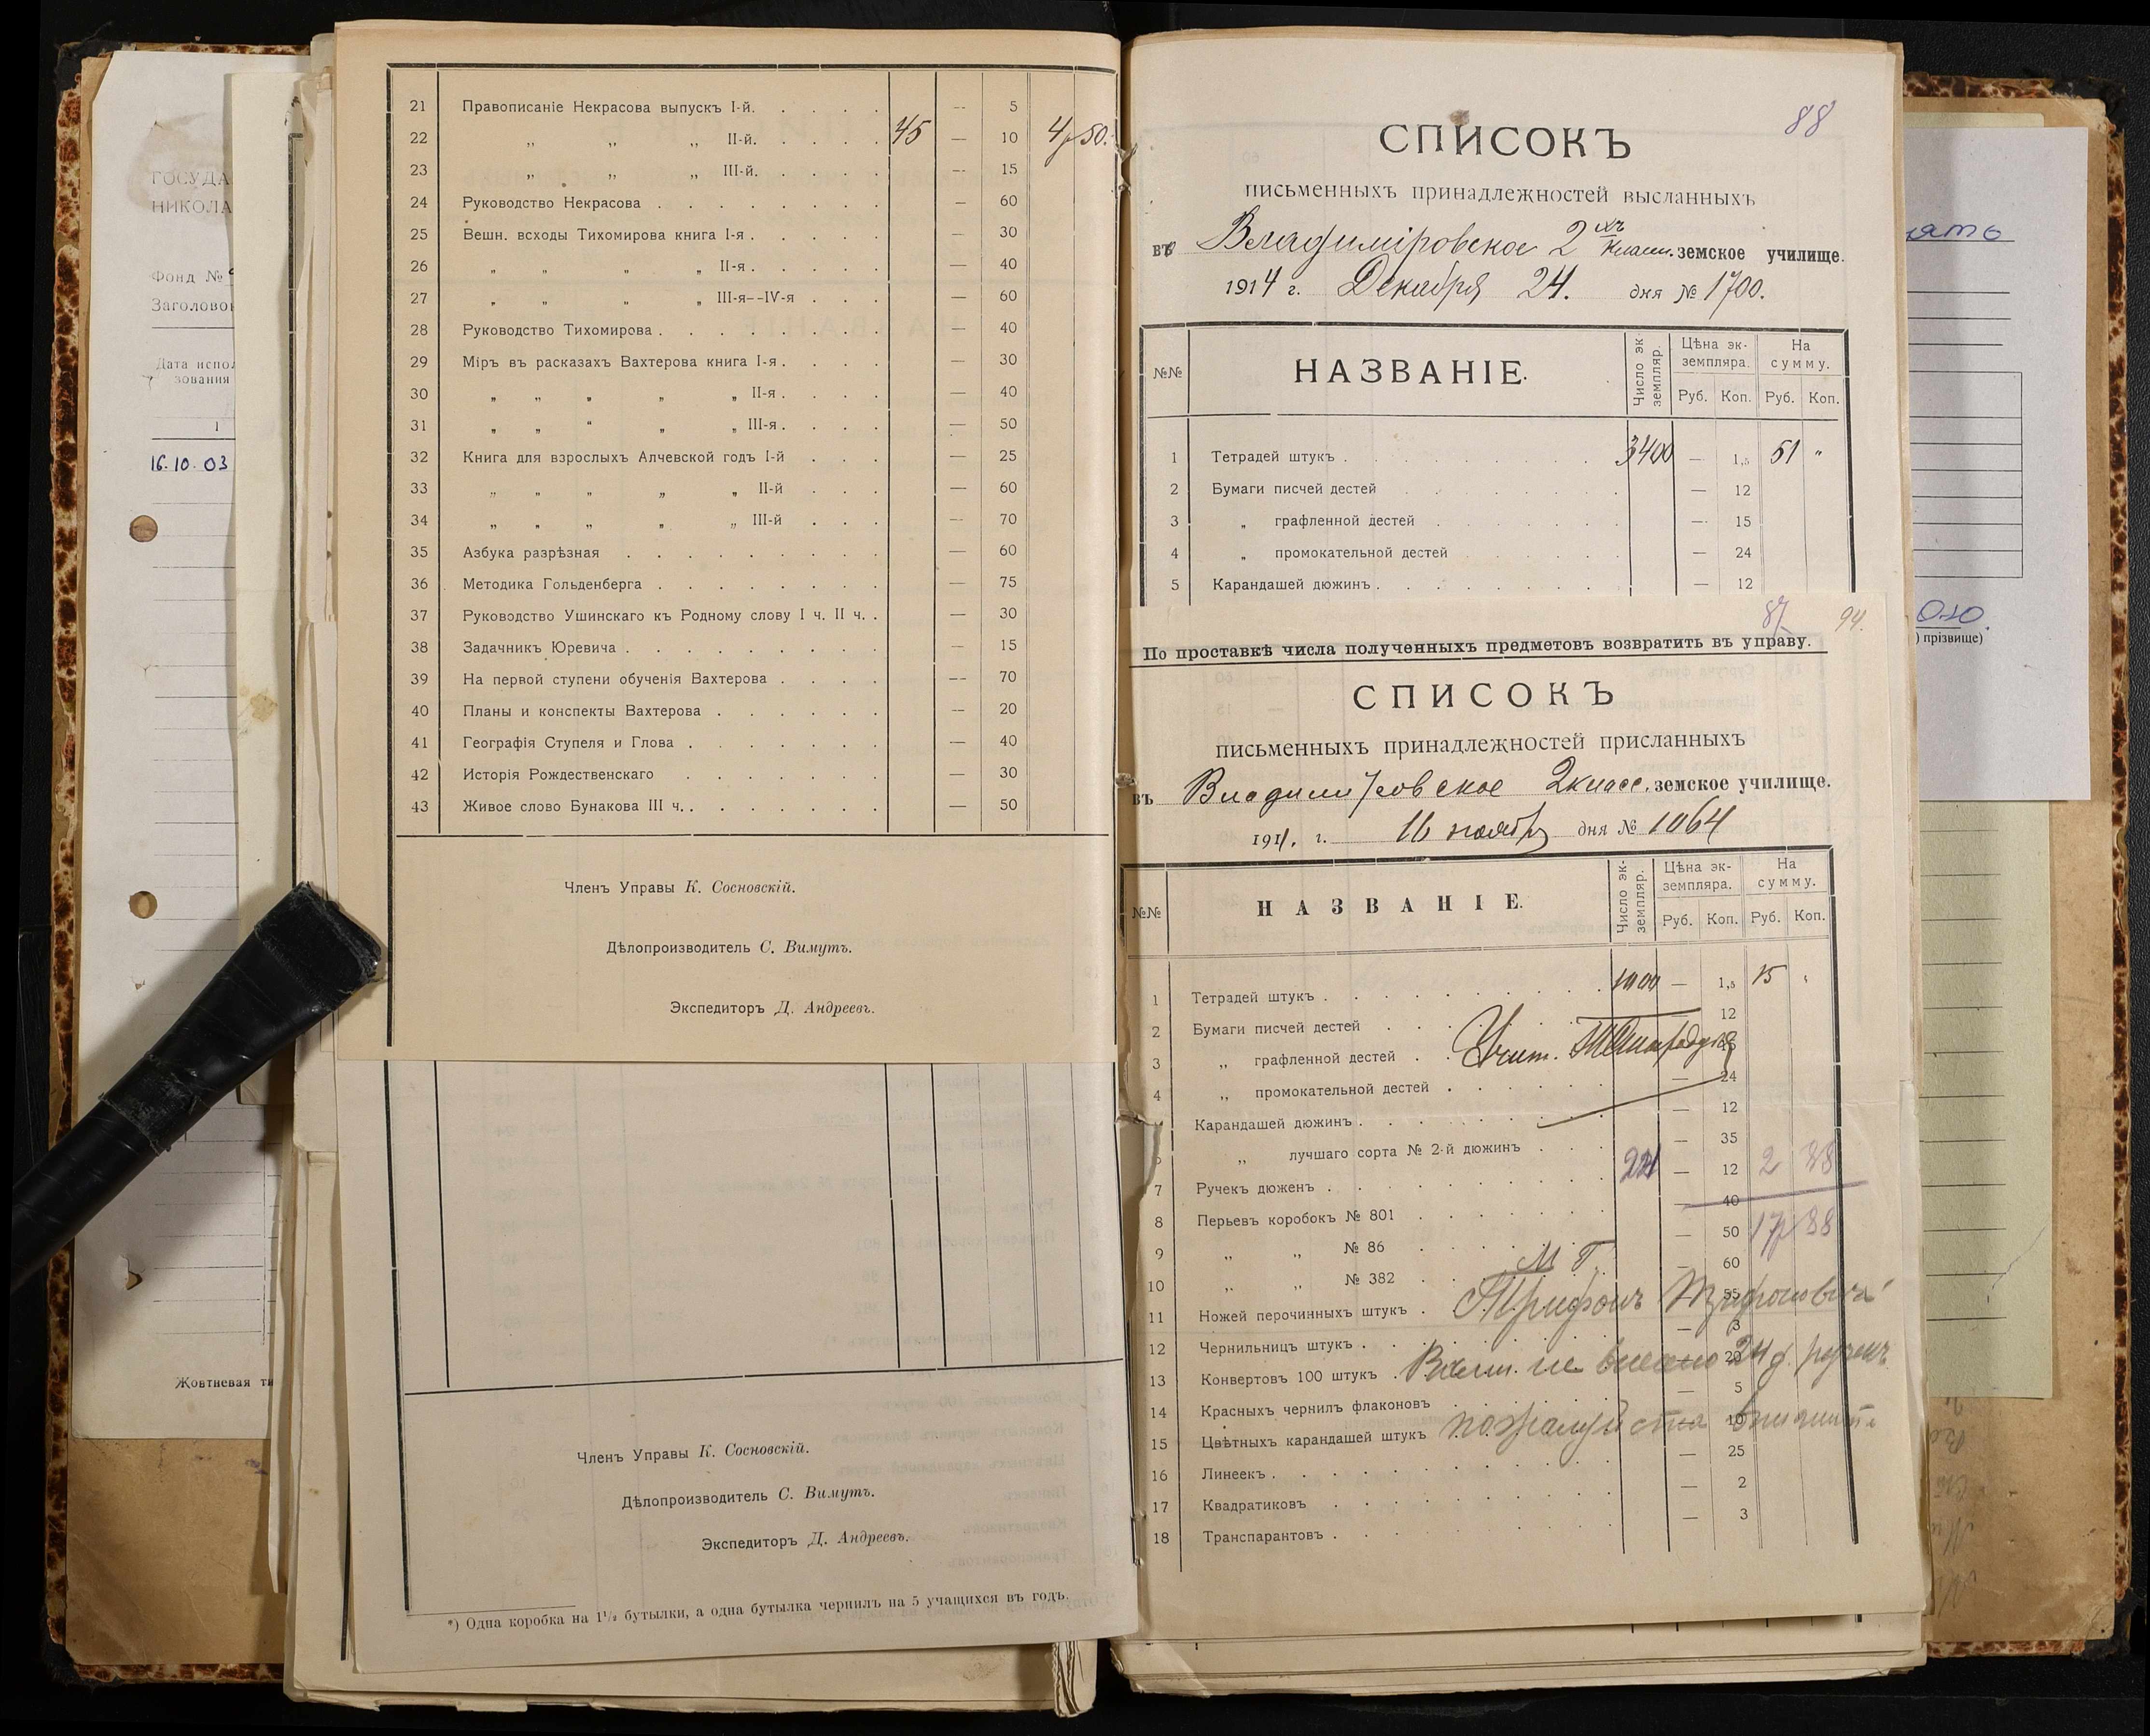 21 Правописаніе Некрасова выпускъ I-й. — 5
22 „ „ „ II-й. 45 — 10 4р 50.
23 „ „ „ III-й. — 15
24 Руководство Некрасова — 60
25 Вешн. всходы Тихомирова книга I-я — 30
26 „ „ „ „ II-я — 40
27 „ „ „ „ III-я--IV-я — 60
28 Руководство Тихомирова — 40
29 Міръ въ расказахъ Вахтерова книга I-я — 30
30 „ „ „ „ „ II-я — 40
31 „ „ „ „ „ III-я — 50
32 Книга для взрослыхъ Алчевской годъ I-й — 25
33 „ „ „ „ „ II-й — 60
34 „ „ „ „ „ III-й — 70
35 Азбука разрѣзная — 60
36 Методика Гольденберга — 75
37 Руководство Ушинскаго къ Родному слову I ч. II ч. — 30
38 Задачникъ Юревича — 15
39 На первой ступени обученія Вахтерова — 70
40 Планы и конспекты Вахтерова — 20
41 Географія Ступеля и Глова — 40
42 Исторія Рождественскаго — 30
43 Живое слово Бунакова III ч. — 50
Членъ Управы К. Сосновскій.
Дѣлопроизводитель С. Вимутъ.
Экспедиторъ Д. Андреевъ.
Членъ Управы К. Сосновскій.
Дѣлопроизводитель С. Вимутъ.
Экспедиторъ Д. Андреевъ.
*) Одна коробка на 1¹/₂ бутылки, а одна бутылка чернилъ на 5 учащихся въ годъ.
ГОСУДА
НИКОЛА
Фонд №
Заголовок
Дата испол
зования
1
16.10.03
Жовтневая ти
88
СПИСОКЪ
письменныхъ принадлежностей высланныхъ
въ Владиміровское 2 хъ класс. земское училище.
1914 г. Декабря 24. дня № 1700.
№№ НАЗВАНІЕ. Число экземпляр. Цѣна экземпляра. На сумму.
Руб. Коп. Руб. Коп.
1 Тетрадей штукъ 3400 — 1,5 51 "
2 Бумаги писчей дестей — 12
3 „ графленной дестей — 15
4 „ промокательной дестей — 24
5 Карандашей дюжинъ — 12
87 94.
По проставкѣ числа полученныхъ предметовъ возвратить въ управу.
СПИСОКЪ
письменныхъ принадлежностей присланныхъ
въ Владиміровское 2 класс. земское училище.
1914. г. 16 ноябр дня № 1064
№№ НАЗВАНІЕ. Число экземпляр. Цѣна экземпляра. На сумму.
Руб. Коп. Руб. Коп.
1 Тетрадей штукъ 1000 — 1,5 15 "
2 Бумаги писчей дестей — 12
3 „ графленной дестей
Учит.
4 „ промокательной дестей — 24
Карандашей дюжинъ — 12
„ лучшаго сорта № 2-й дюжинъ — 35
7 Ручекъ дюженъ 24 — 12 2 88
8 Перьевъ коробокъ № 801 — 40
9 „ „ № 86 — 50 17р 88
10 „ „ № 382 — 60
М Г.
11 Ножей перочинныхъ штукъ 55
Трифонъ Трифоновичъ
12 Чернильницъ штукъ — 3
13 Конвертовъ 100 штукъ — 20
Вами не внесено 24 д. ручекъ
14 Красныхъ чернилъ флаконовъ — 5
15 Цвѣтныхъ карандашей штукъ — 10
пожалуйста впишите
16 Линеекъ — 25
17 Квадратиковъ — 2
18 Транспарантовъ — 3
) прізвище)